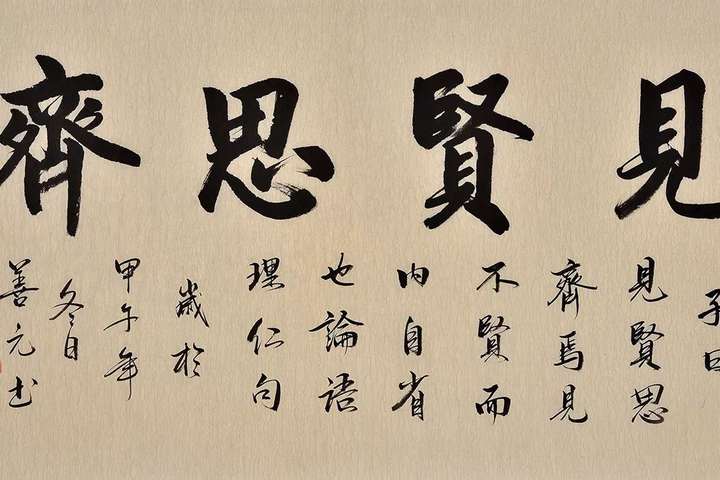 見賢思齊
子曰
見賢思
齊焉見
不賢而
內自省
也論語
理仁句
歲於
甲午年
冬日
善元书